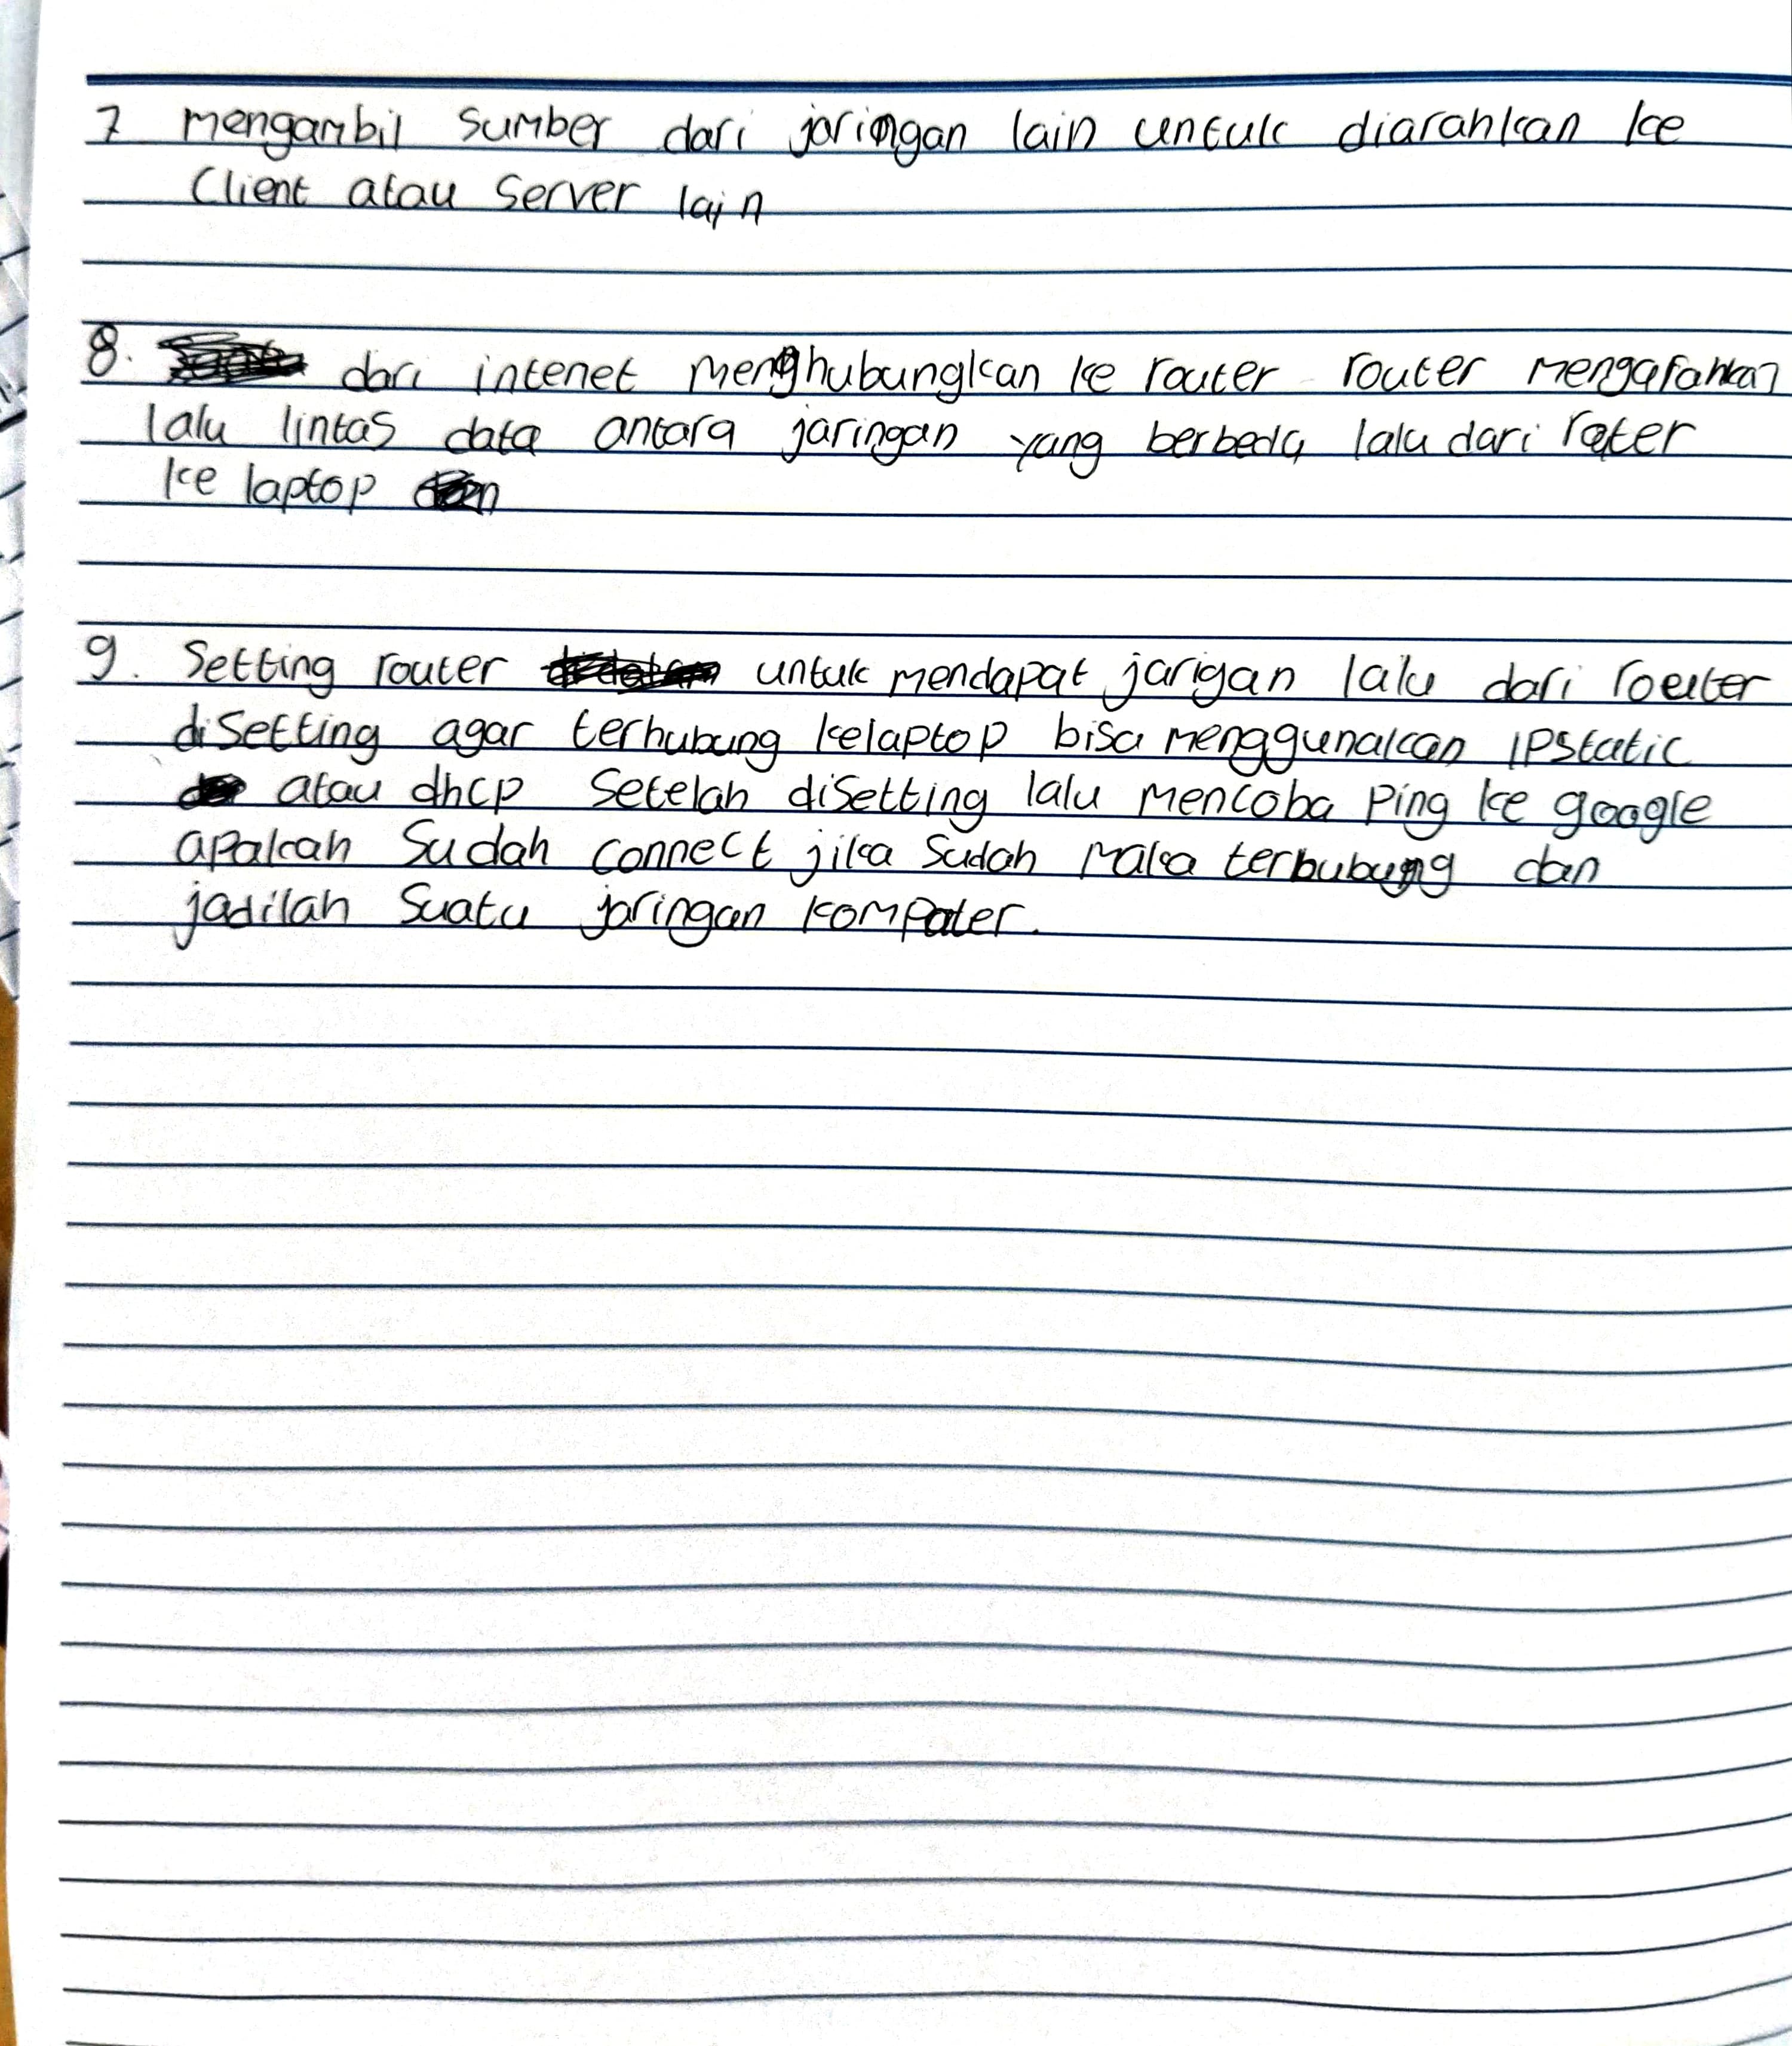 7 mengambil sumber dari jaringan lain untuk diarahkan ke
Client atau Server lain
8. dari intenet menghubungkan ke router router mengarahkan
lalu lintas data antara jaringan yang berbeda lalu dari roter
ke laptop
9. Setting router untuk mendapat jarigan lalu dari router
disetting agar terhubung kelaptop bisa menggunakan IPstatic
atau dhcp Setelah disetting lalu mencoba Ping ke google
apakah Sudah connect jika Sudah maka terhubung dan
jadilah Suatu jaringan komputer.